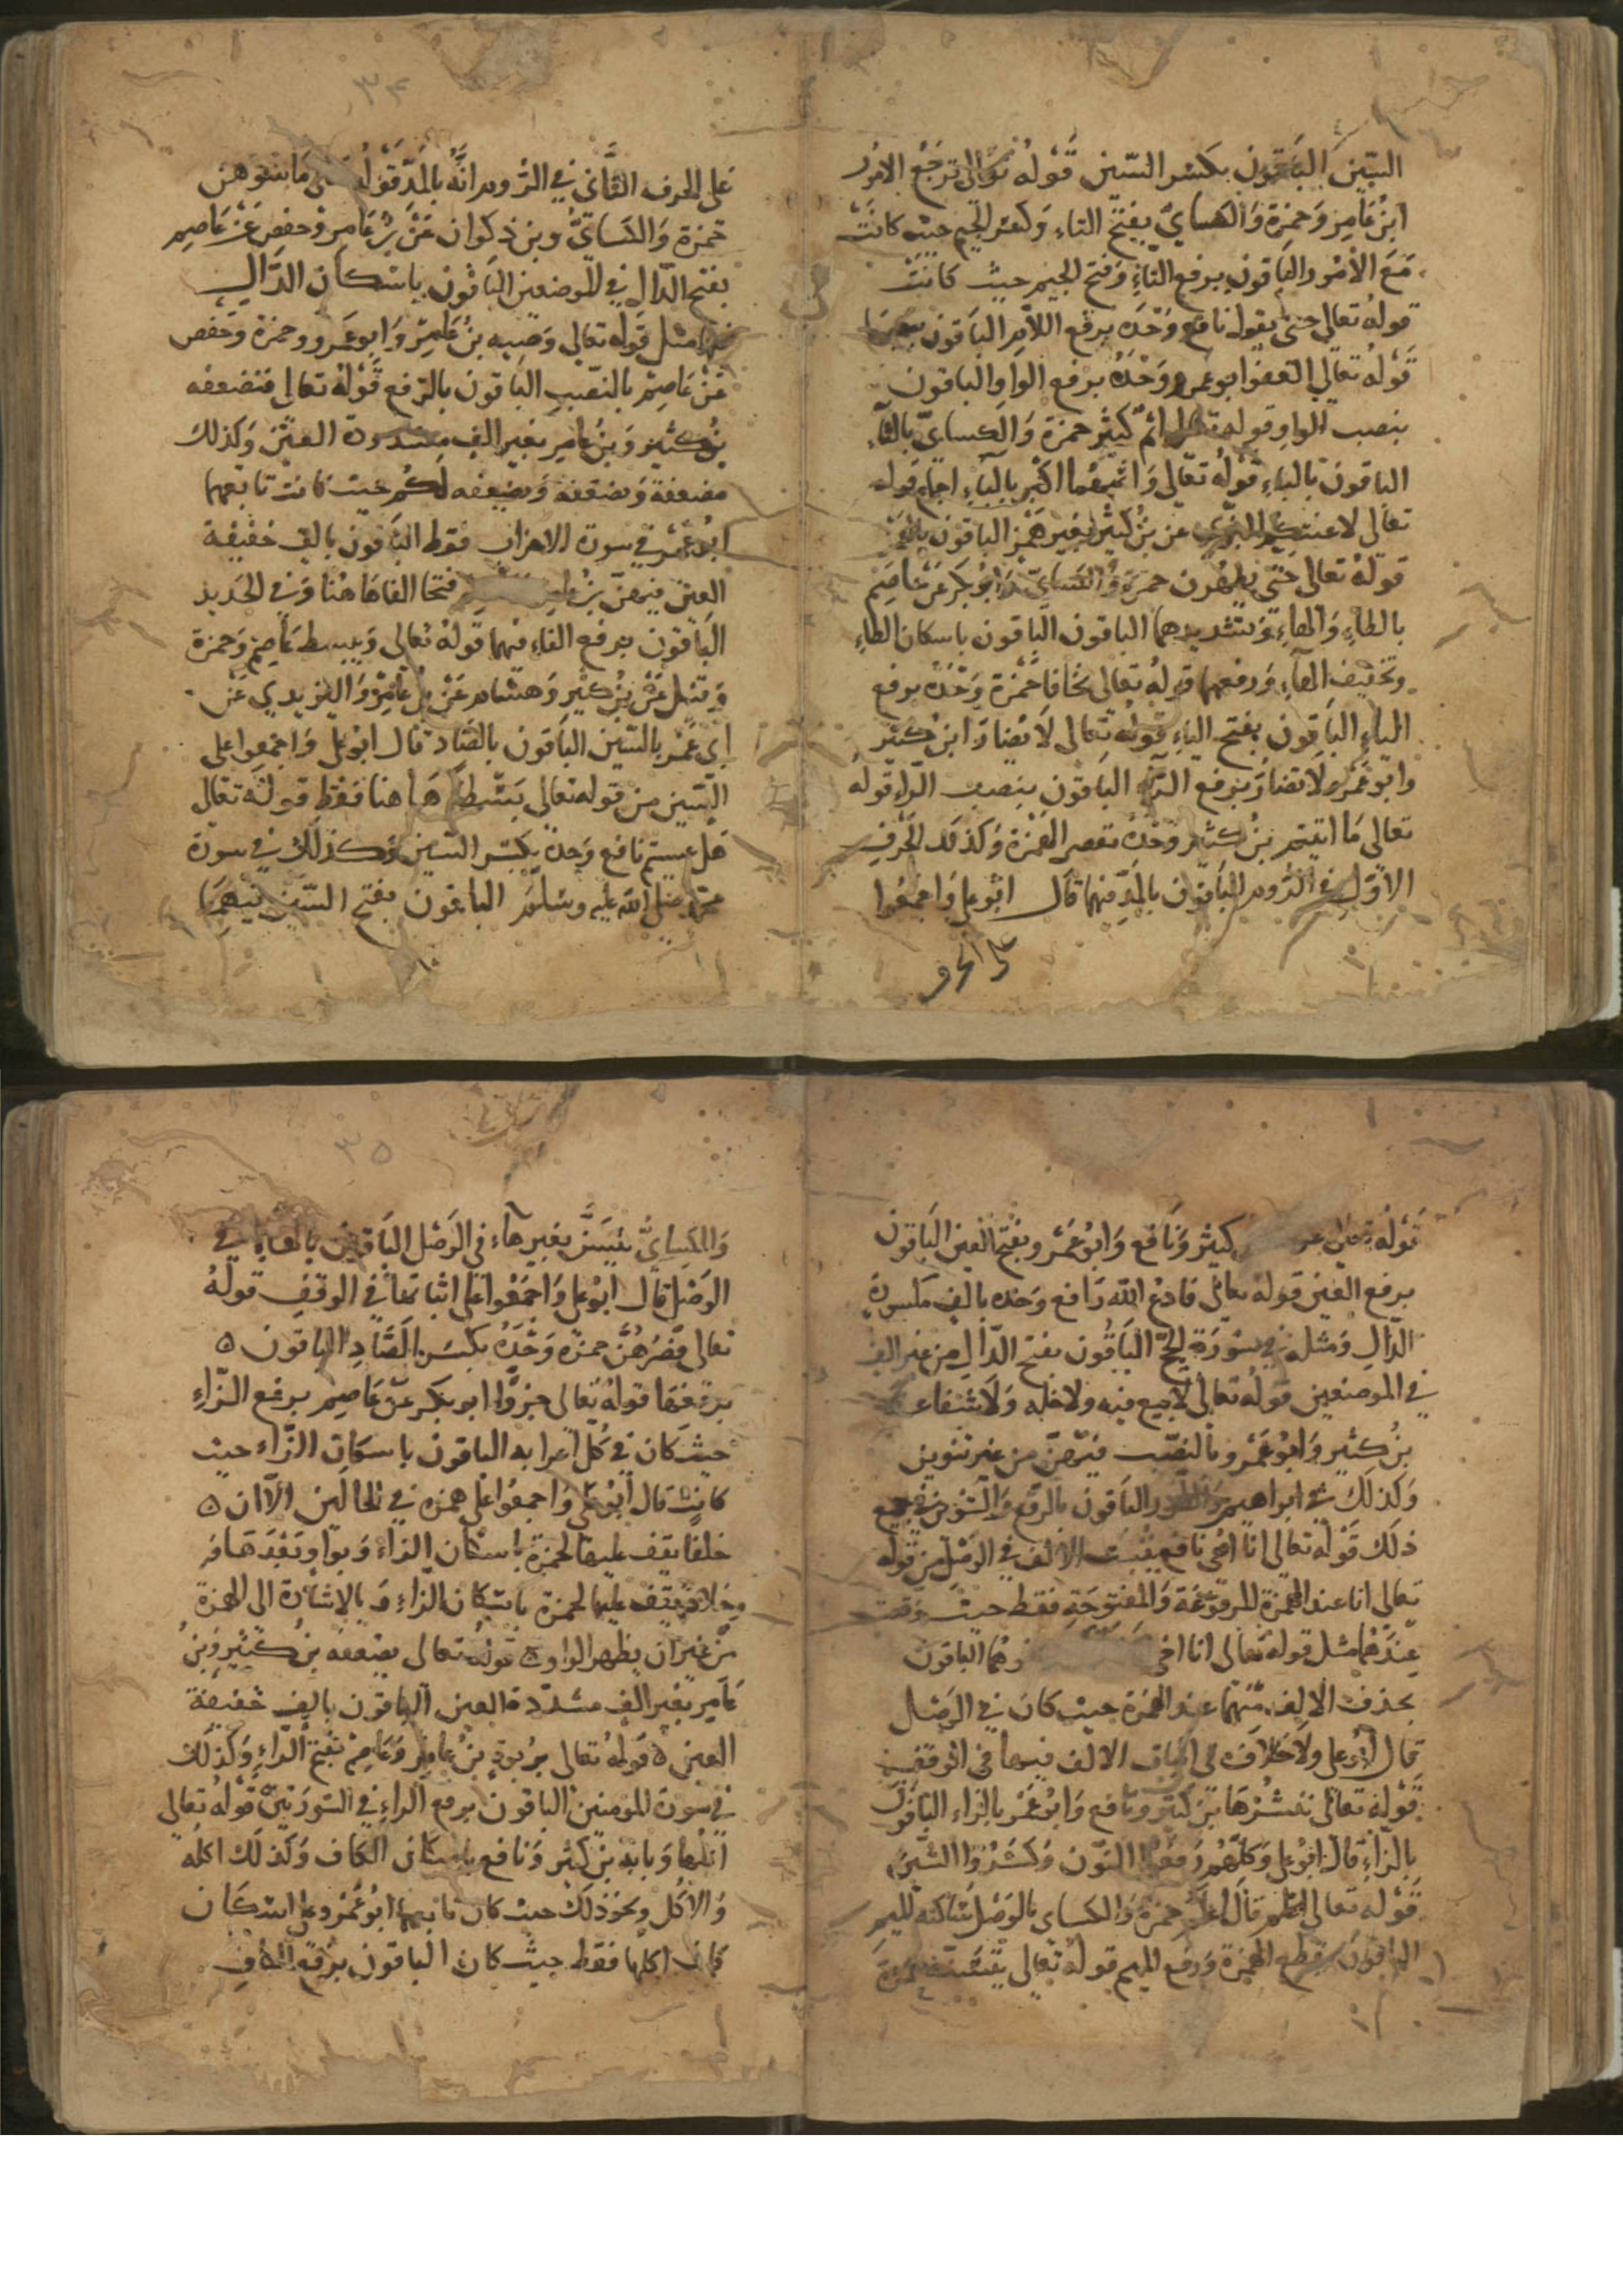 السين الباقون بكسر السين قوله تعالى ترجع الامور
ابن عامر وحمزة والكسايُ بفتح التاء وكسر الجيم حيث كانت
مع الأمور والباقون برفع التاءِ وفتح الجيم حيث كانت
قوله تعالى حتى يقول نافع وحده برفع اللام الباقون بنصبها
قوله تعالى العفوا بو عمرو وحده برفع الواو الباقون
بنصب الواو قوله تعالى اثم كبير حمزة والكسايّ بالثاء
الباقون بالباءِ قوله تعالى واثمهما اكبر بالباءِ اجماع قوله
تعالى لاعنتكم البزي عن بن كثير بغير همز الباقون بالهمز
قوله تعالى حتى يطهرن حمزة والكسايّ وابو بكر عن عاصم
بالطاءِ والهاءِ وبتشديدهما الباقون الباقون باسكان الطاءِ
وتخفيف الهاءِ ورفعهما قوله تعالى يخافا حمزة وحده برفع
الياءِ الباقون بفتح الياءِ قوله تعالى لا تضار ابن كثير
وابو عمرو لا تضار برفع الراءِ الباقون بنصب الراء قوله
تعالى ما اتيتم بن كثير وحده بقصر الهمزة وكذلك الحرف
الاول في الروم الباقون بالمدّ فيهما قال ابو علي واجمعوا
على الحرف
٣٤
على الحرف الثاني في الروم انه بالمدّ قوله تعالى ما تمسوهن
حمزة والكسايُّ وبن ذكوان عن بن عامر وحفص عن عاصم
بفتح الدال في الموضعين الباقون باسكان الدال
فيهما مثل قوله تعالى وصيه بن عامر وابو عمرو وحمزة وحفص
عن عاصم بالنصب الباقون بالرفع قوله تعالى فنضعفه
بن كثير وبن عامر بغير الف مشددة العين وكذلك
مضعفة ويضعفه ويضعفه لكم حيث كانت تابعهما
ابو عمرو في سورة الاحزاب فقط الباقون بالف خفيفة
العين فيهن بن عامر فتحا الفا هاهنا وفي الحديد
الباقون برفع الفاء فيهما قوله تعالى ويبسط عاصم وحمزة
وقنبل عن بن كثير وهشام عن بن عامر واليزيدي عن
ابي عمرو بالسين الباقون بالصاد قال ابو علي واجمعوا على
السين من قوله تعالى بسطة هاهنا فقط قوله تعالى
هل عسيتم نافع وحده بكسر السين وكذلك في سورة
محمد صلى الله عليه وسلم الباقون بفتح السين فيهما
قوله تعالى كثير ونافع وابو عمرو بفتح الغين الباقون
برفع الغين قوله تعالى فادفع الله نافع وحده بالف مكسورة
الدال ومثله في سورة الحج الباقون بفتح الدال من غير الف
في الموضعين قوله تعالى لا بيع فيه ولا خله ولا شفاعه
بن كثير وابو عمرو بالنصب فيهنّ من غير تنوين
وكذلك في ابراهيم والطور الباقون بالرفع والتنوين في جميع
ذلك قوله تعالى انا احي نافع يثبت الالف في الوصل من قوله
تعالى انا عند الهمزة المرفوعة والمفتوحة فقط حيث وقعت
عندهما مثل قوله تعالى انا احي ونحوهما الباقون
بحذف الالف منهما عند الهمزة حيث كان في الوصل
قال ابو علي ولا خلاف في اثبات الالف فيها في الوقف
قوله تعالى ننشرها بن كثير ونافع وابو عمرو بالراء الباقون
بالزاءِ قال ابو علي وكلهم رفعوا النون وكسروا الشين
قوله تعالى اعلم قال اعلم حمزة والكساي بالوصل ساكنه الميم
الباقون بقطع الهمزة ورفع الميم قوله تعالى يتسنه حمزة
٣٥
والكسايُّ يتسنَّ بغير هاء في الوصل الباقون بالهاء في
الوصل قال ابو علي واجمعوا على اثباتها في الوقف قوله
تعالى فصرهن حمزة وحده بكسر الصاد الباقون ٥
برفعها قوله تعالى جزوًا ابو بكر عن عاصم برفع الزاءِ
حيث كان في كل اعرابه الباقون باسكان الزاء حيث
كانت قال ابو علي واجمعوا على همزه في الحالين الا ان ٥
خلفا يقف عليها لحمزة باسكان الزاء وبواو بعدها و
وخلاد يقف عليها لحمزة باسكان الزاءِ وبالاشارة الى الهمزة
من غير ان يظهر الواو ٥ قوله تعالى يضعفه بن كثير وبن
عامر بغير الف مشدّدة العين الباقون بالف خفيفة
العين ٥ قوله تعالى بربوةٍ بن عامر وعاصم بفتح الراءِ وكذلك
في سورة المومنين الباقون برفع الراءِ في السورتين قوله تعالى
اكلها وبابه بن كثير ونافع باسكان الكاف وكذلك اكله
والاكل ونحو ذلك حيث كان تابعهما ابو عمرو على اسكان
كاف اكلها فقط حيث كان الباقون برفع الكاف